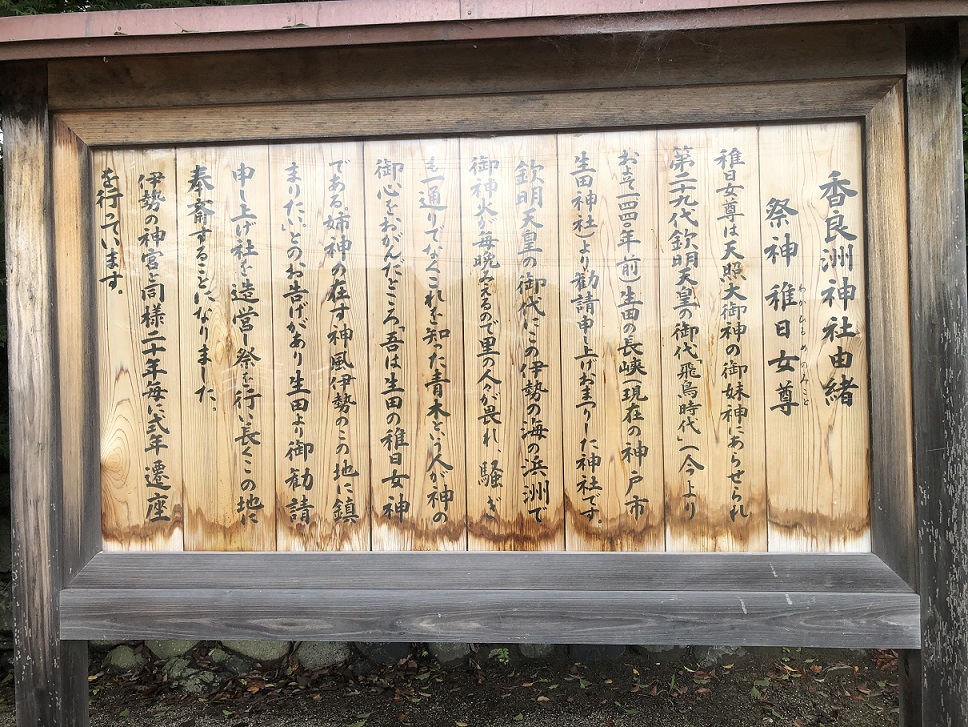 香良洲神社由緒
祭神 稚日女尊
わかひるめのみこと
稚日女尊は天照大御神の御妹神にあらせられ
第二十九代欽明天皇の御代「飛鳥時代」(今より
およそ一四四〇年前)生田の長峡(現在の神戸市
生田神社)より勧請申し上げおまつりした神社です。
欽明天皇の御代にこの伊勢の海の浜洲で
御神火が毎晩みえるので里の人が畏れ、騒ぎ
も一通りでなくこれを知った青木という人が神の
御心をおがんだところ、「吾は生田の稚日女神
である。姉神の在す神風伊勢のこの地に鎮
まりたい」とのお告げがあり生田より御勧請
申し上げ社を造営し祭を行い長くこの地に
奉斎することになりました。
伊勢の神宮と同様二十年毎に式年遷座
を行っています。